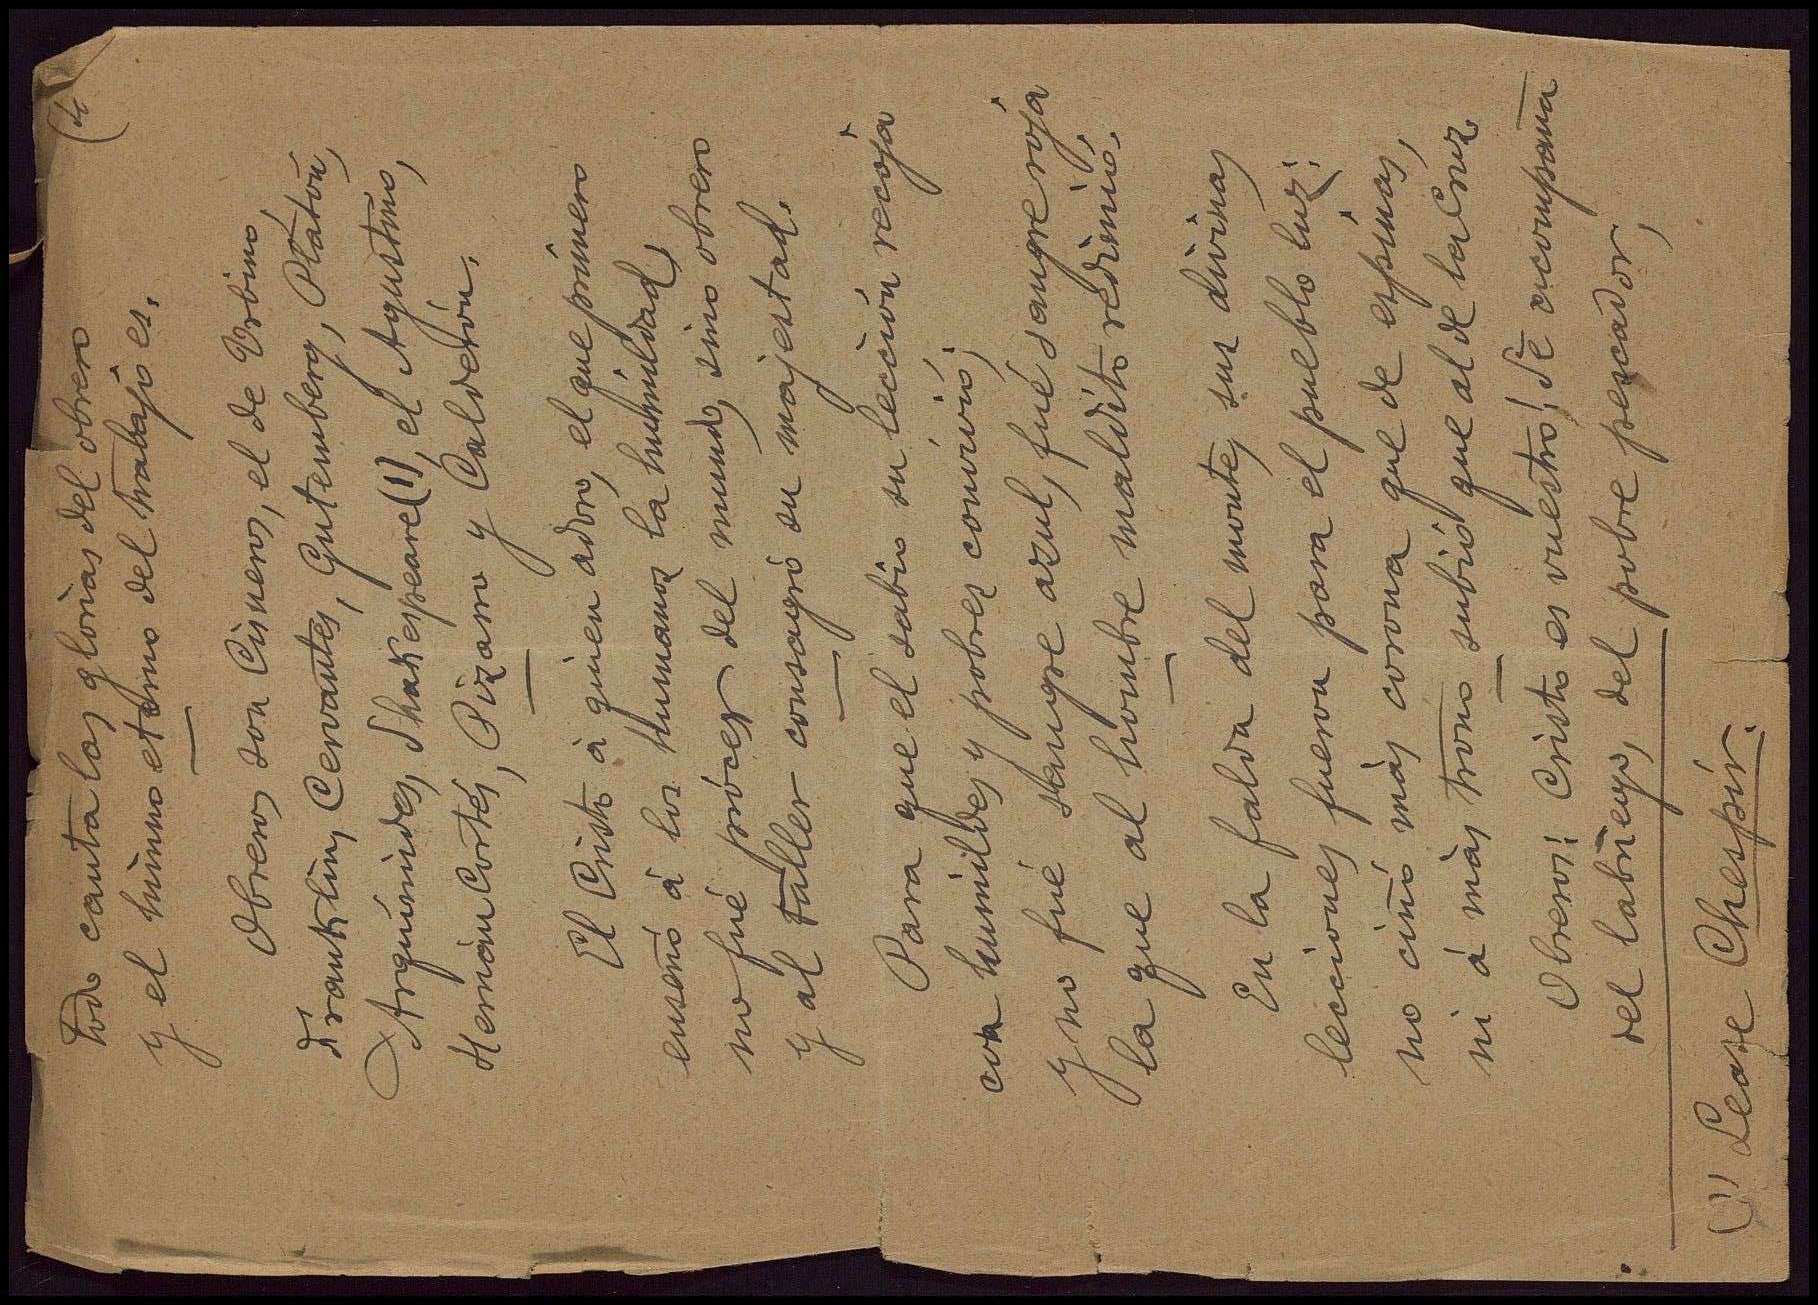 (4
Todo canta las glorias del obrero
y el himno eterno del trabajo es.
—
Obreros son Cisneros, el de Urbino,
Franklin, Cervantes, Gutemberg, Platón,
Arquímides, Shakespeare (1), el Agustino,
Hernán Cortés, Pizarro y Calderón.
—
El Cristo á quien adoro, el que primero
enseñó á los humanos la humildad,
no fué prócer del mundo, sino obrero
y al taller consagró su majestad.
—
Para que el sabio su lección recoja
con humildes y pobres convivió;
y no fué sangre azul, fué sangre roja,
la que al hombre maldito redimió.
—
En la falda del monte, sus divinas
lecciones fueron para el pueblo luz;
no ciñó más corona que de espinas,
ni á más trono subió que al de la Cruz.
—
Obreros: Cristo es vuestro! Se acompaña
del labriego, del pobre pescador,
(1) Lease Chespir.